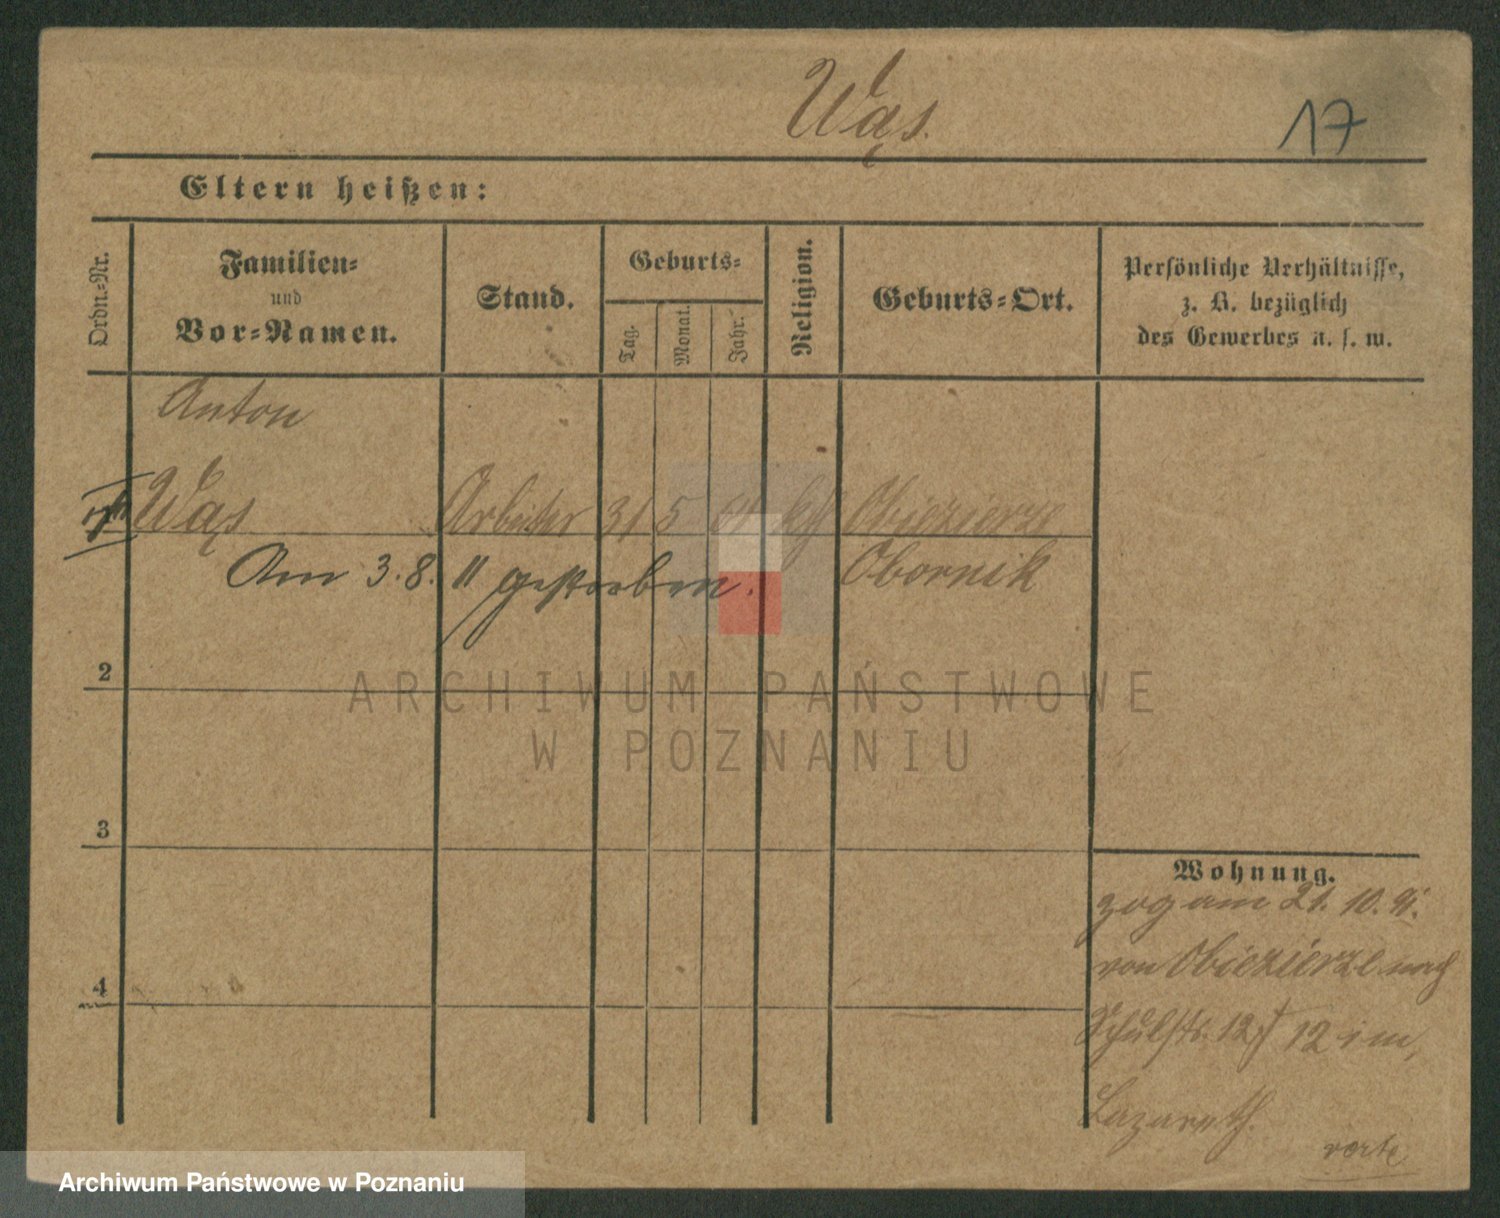 Wąs.
17
Eltern heißen:
Ordn.-Nr.
Familien-
und
Vor-Namen.
Stand.
Geburts-
Tag.
Monat.
Jahr.
Religion.
Geburts-Ort.
Persönliche Verhältnisse,
z. B. bezüglich
des Gewerbes u. s. w.
Anton
Wąs Arbeiter 31 5 kth Obiezierze
Am 3.8. 11 gestorben. Obornik
2
ARCHIWUM PAŃSTWOWE
W POZNANIU
3
Wohnung.
zog am 21. 10. 91.
von Obiezierze nach
4
Schulstr. 12 12 im
Lazareth.
verte
Archiwum Państwowe w Poznaniu